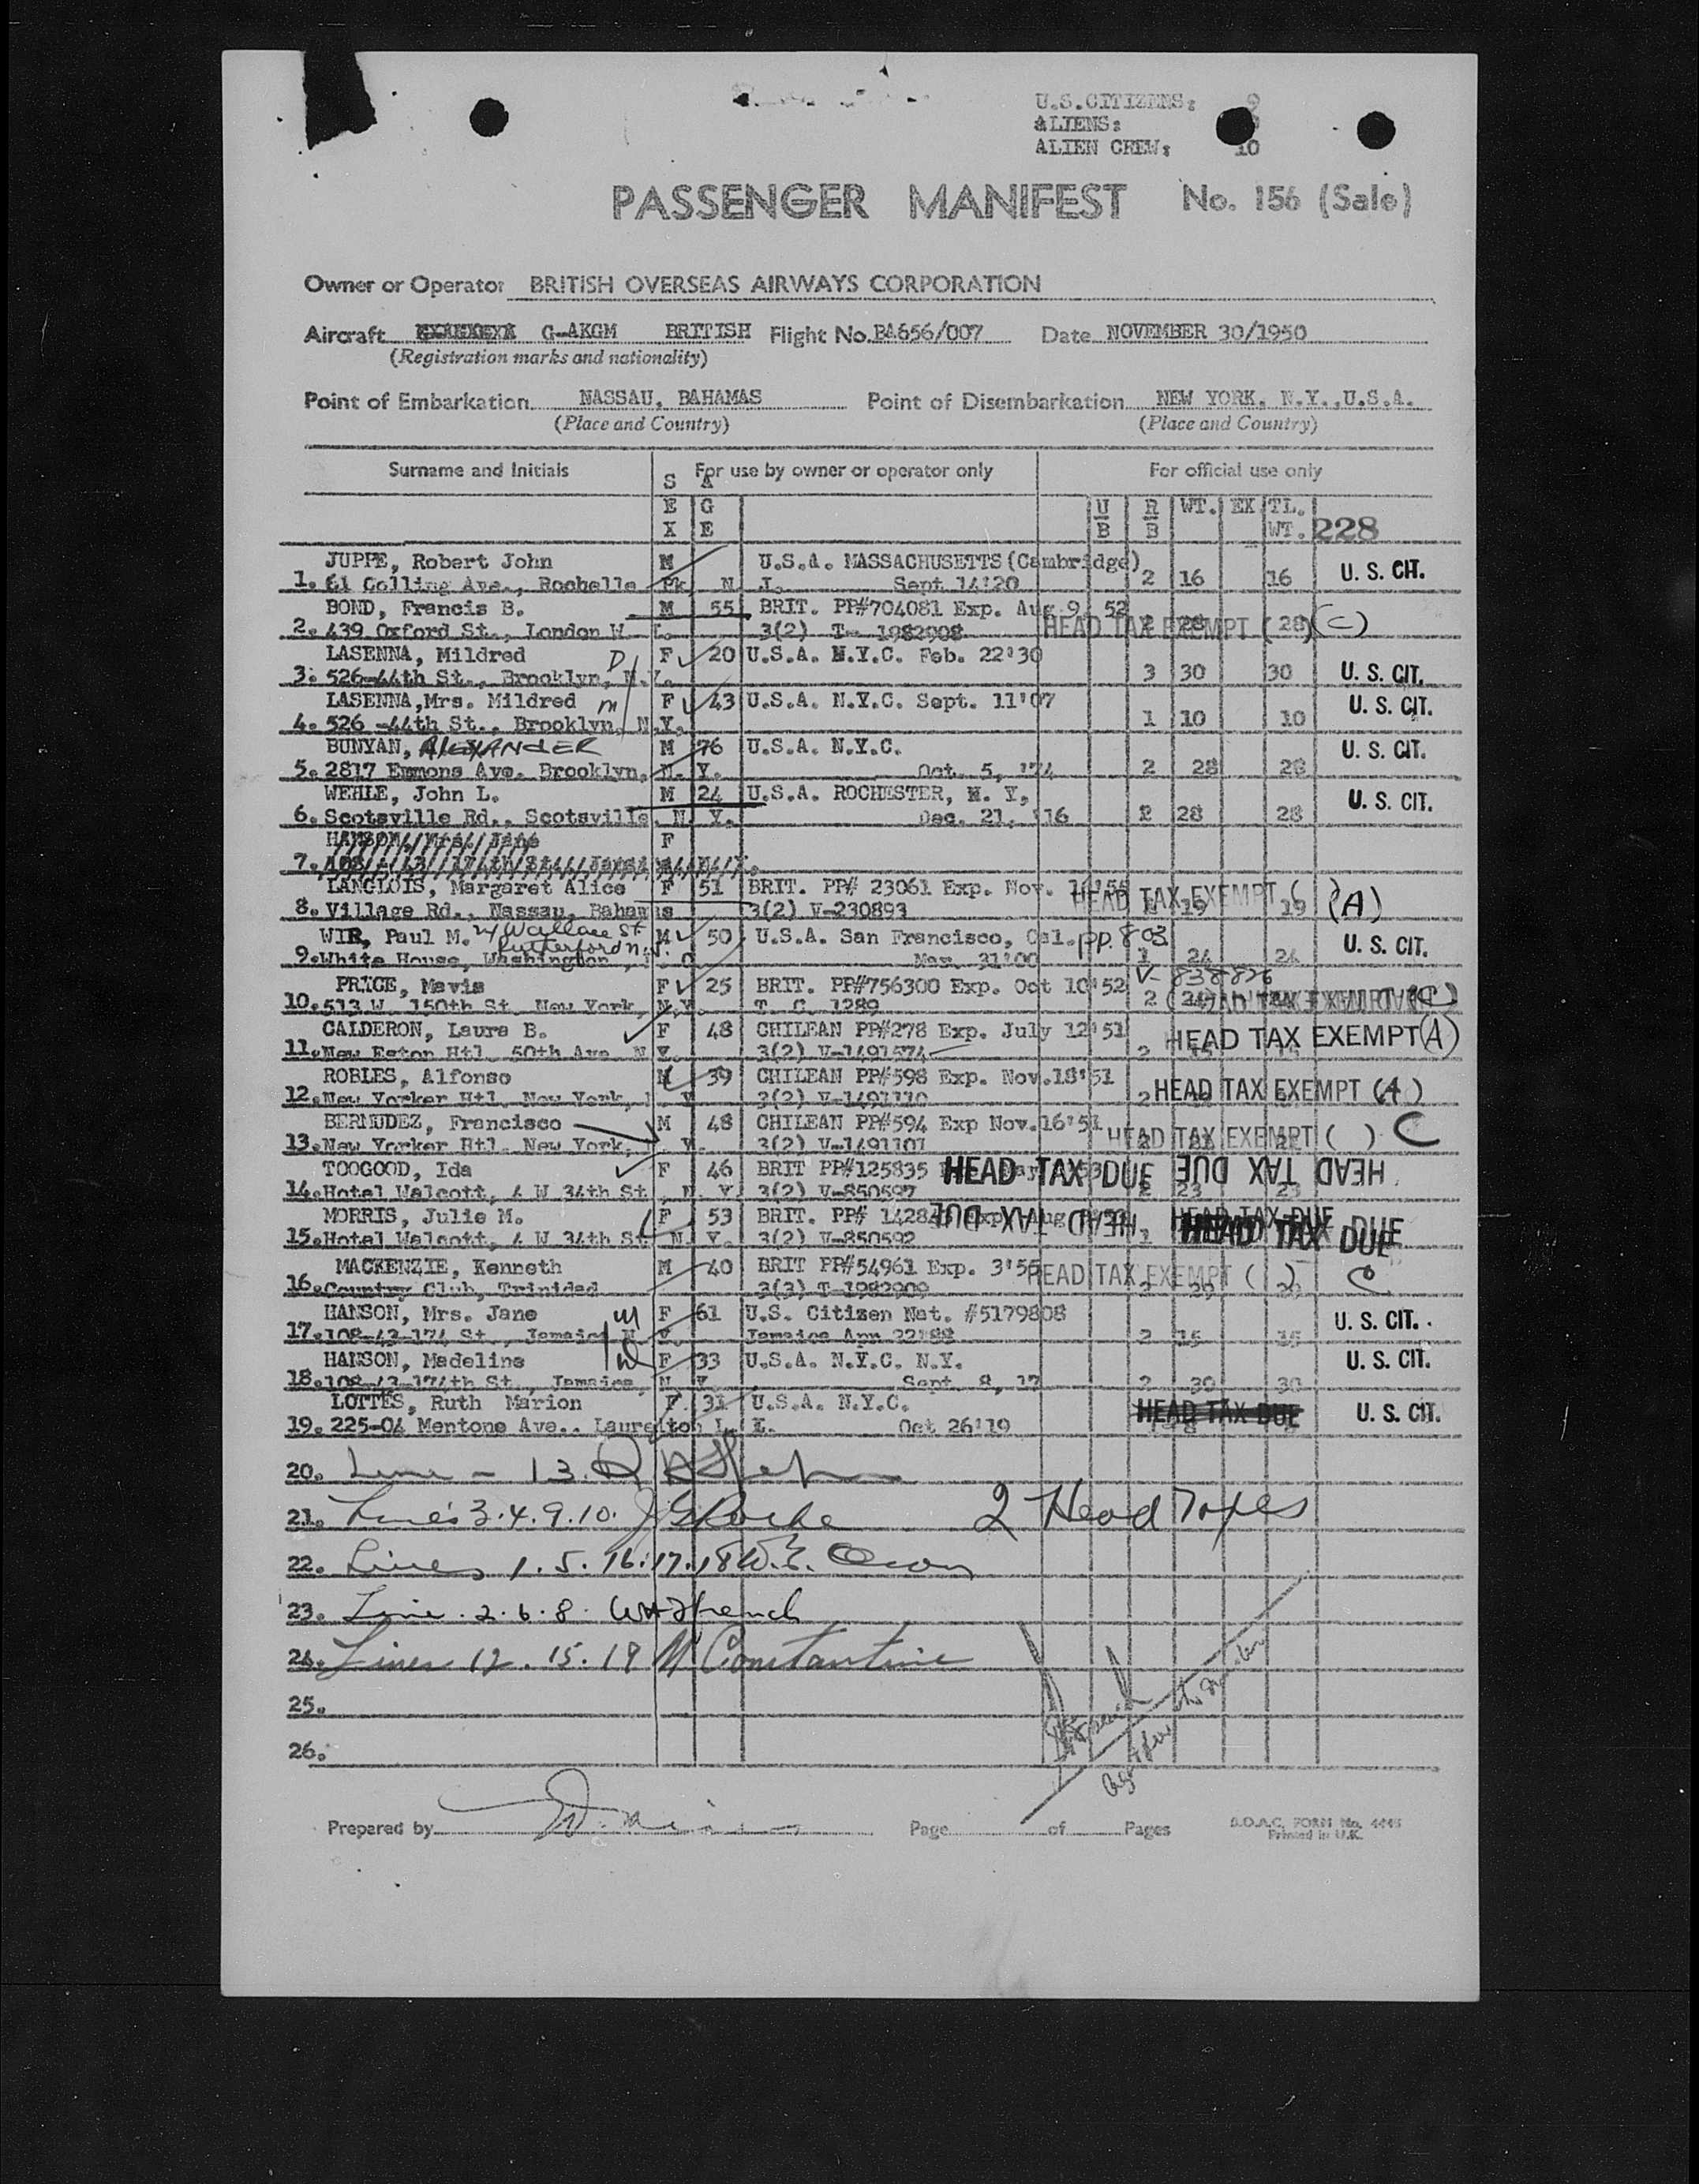 U.S.CITIZENS: 9
ALIENS:
ALIEN CREW: 10
PASSENGER MANIFEST No. 156 (Sale)
Owner or Operator BRITISH OVERSEAS AIRWAYS CORPORATION
Aircraft G-AKGM BRITISH Flight No. BA656/007 Date NOVEMBER 30/1950
(Registration marks and nationality)
Point of Embarkation NASSAU, BAHAMAS Point of Disembarkation NEW YORK, N.Y.,U.S.A.
(Place and Country) (Place and Country)
Surname and Initials SEX AGE For use by owner or operator only For official use only
U/B R/B WT. EX TL. WT. 228
JUPPE, Robert John M U.S.A. MASSACHUSETTS (Cambridge)
1. 61 Colling Ave., Rochelle Pk, N J. Sept 14'20 2 16 16 U. S. CIT.
BOND, Francis B. M 55 BRIT. PP#704081 Exp. Aug 9, 52
2. 439 Oxford St., London W. 1. 3(2) T- 1982908 HEAD TAX EXEMPT ( 2 28 28 ) (C)
LASENNA, Mildred D F 20 U.S.A. N.Y.C. Feb. 22'30
3. 526-44th St., Brooklyn, N.Y. 3 30 30 U. S. CIT.
LASENNA,Mrs. Mildred m F 43 U.S.A. N.Y.C. Sept. 11'07
4. 526 -44th St., Brooklyn, N.Y. 1 10 10 U. S. CIT.
BUNYAN, ALEXANDER M 76 U.S.A. N.Y.C.
5. 2817 Emmons Ave. Brooklyn, N. Y. Oct. 5, '74 2 28 28 U. S. CIT.
WEHLE, John L. M 24 U.S.A. ROCHESTER, N. Y.
6. Scotsville Rd., Scotsville, N. Y. Dec. 21, '16 2 28 28 U. S. CIT.
HANSON, Mrs. Jane F
7. 108-43-174th St., Jamaica, N.Y.
LANGLOIS, Margaret Alice F 51 BRIT. PP# 23061 Exp. Nov.
8. Village Rd., Nassau, Bahamas 3(2) V-230893 HEAD TAX EXEMPT ( 19 19 (A)
WIR, Paul M. 24 Wallace St Rutterford N.J. M 50 U.S.A. San Francisco, Cal. pp. 803
9. White House, Washington, D. C. Mar. 31'00 1 24 24 U. S. CIT.
PRICE, Mavis F 25 BRIT. PP#756300 Exp. Oct 10'52 V-838826
10. 513 W. 150th St. New York, N.Y. T. C. 1289 2 HEAD TAX EXEMPT (C)
CALDERON, Laura B. F 48 CHILEAN PP#278 Exp. July 12'51
11. New Eston Htl. 50th Ave N Y. 3(2) V-1491574 2 HEAD TAX EXEMPT (A)
ROBLES, Alfonso M 39 CHILEAN PP#598 Exp. Nov.18'51
12. New Yorker Htl. New York, N. Y 3(2) V-1491110 2 HEAD TAX EXEMPT (A)
BERMUDEZ, Francisco M 48 CHILEAN PP#594 Exp Nov.16'51
13. New Yorker Htl. New York, N. Y. 3(2) V-1491101 HEAD TAX EXEMPT ( ) C
TOOGOOD, Ida F 46 BRIT PP#125835 HEAD TAX DUE HEAD TAX DUE
14. Hotel Walcott, 4 W 34th St. N. Y. 3(2) V-850597 2 23 23
MORRIS, Julie M. F 53 BRIT. PP# HEAD TAX DUE HEAD TAX DUE
15. Hotel Walcott, 4 W 34th St. N. Y. 3(2) V-850592 HEAD TAX DUE
MACKENZIE, Kenneth M 40 BRIT PP#54961 Exp. 3'55
16. Country Club, Trinidad 3(3) T-1982909 HEAD TAX EXEMPT ( ) C
HANSON, Mrs. Jane m F 61 U.S. Citizen Nat. #5179808
17. 108-43-174 St., Jamaica N Y. Jamaica Apr 22'88 2 15 15 U. S. CIT.
HANSON, Madeline F 33 U.S.A. N.Y.C. N.Y.
18. 108-43-174th St., Jamaica, N Y. Sept. 8, 17 2 30 30 U. S. CIT.
LOTTES, Ruth Marion F. 31 U.S.A. N.Y.C.
19. 225-04 Mentone Ave., Laurelton L. I. Oct 26'19 HEAD TAX DUE U. S. CIT.
20. Line - 13.
21. Lines 3.4.9.10. J G Roche 2 Head Taxes
22. Lines 1.5.16.17.18 W.E.
23. Line. 2.6.8. WH French
24. Lines 12.15.19 M Constantine
25.
26.
Prepared by Page of Pages
B.O.A.C. FORM No. 4445
Printed in U.K.